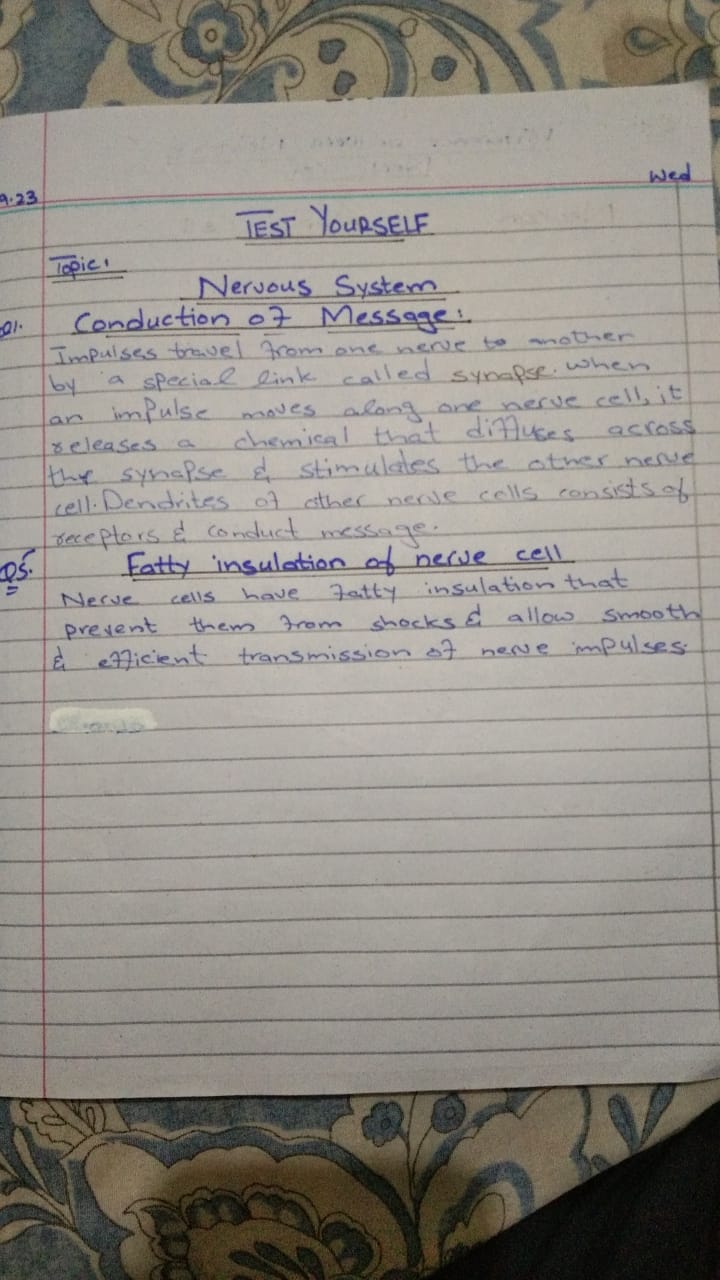 9.23
Wed
TEST YOURSELF
Topic:
Nervous System
Q1. Conduction of Message:
Impulses travel from one nerve to another
by a special link called synapse. when
an impulse moves along one nerve cell, it
releases a chemical that diffuses across
the synapse & stimulates the other nerve
cell. Dendrites of other nerve cells consists of
receptors & conduct message.
Q5. Fatty insulation of nerve cell
Nerve cells have fatty insulation that
prevent them from shocks & allow smooth
& efficient transmission of nerve impulses.